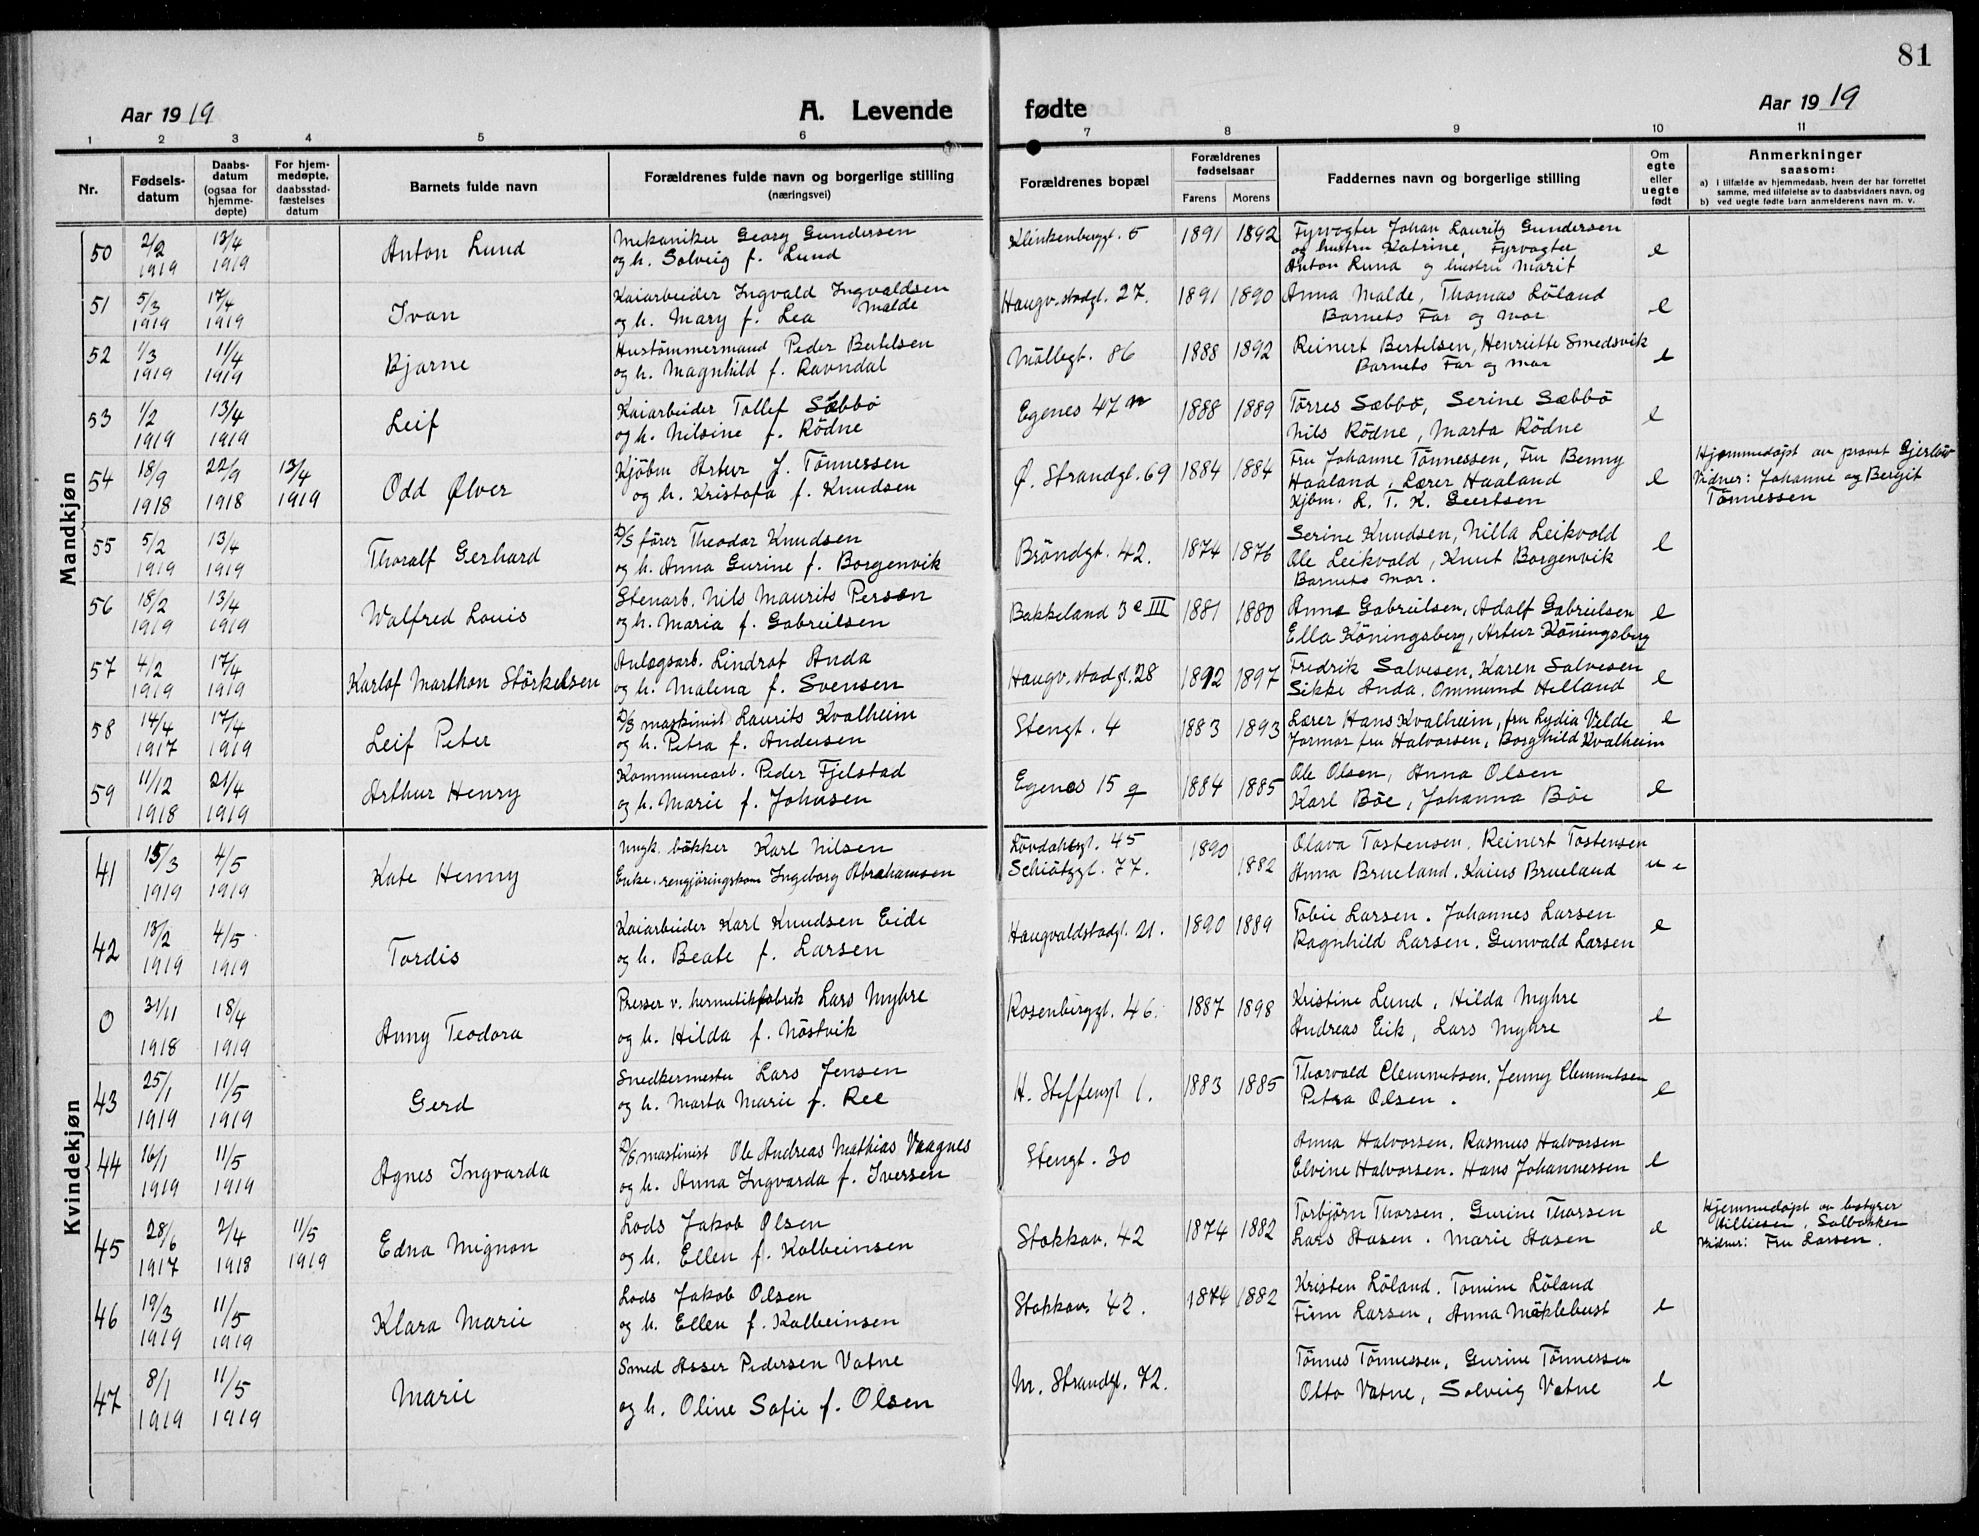 81
Aar 1919 A. Levende fødte Aar 1919
1 2 3 4 5 6 7 8 9 10 11
Nr. Fødselsdatum Daabsdatum (ogsaa for hjemmedøpte) For hjemmedøpte, daabsstadfæstelses datum Barnets fulde navn Forældrenes fulde navn og borgerlige stilling (næringsvei) Forældrenes bopæl Forældrenes fødselsaar Farens Morens Faddernes navn og borgerlige stilling Om egte eller uegte født Anmerkninger saasom:
a) I tilfælde av hjemmedaab, hvem der har forrettet samme, med tilføielse av to daabsvidners navn, og
b) ved uegte fødte barn anmelderens navn m. v.
Mandkjøn
50 2/2 1919 13/4 1919 Anton Lund Mekaniker Georg Gundersen og h. Solveig f. Lund Klinkenberggt. 5 1891 1892 Fyrvogter Johan Lauritz Gundersen og hustru Katrine, Fyrvogter Anton Lund og hustru Marit e
51 5/3 1919 17/4 1919 Ivan Kaiarbeider Ingvald Ingvaldsen Malde og h. Mary f. Lea Haugv.stadgt. 27. 1891 1890 Anna Malde, Thomas Löland Barnets Far og mor e
52 1/3 1919 11/4 1919 Bjarne Hustömmermand Peder Bertelsen og h. Magnhild f. Ravndal Möllegt. 86 1888 1892 Reinert Bertelsen, Henriette Smedsvik Barnets Far og mor e
53 1/2 1919 13/4 1919 Leif Kaiarbeider Tollef Sæbbö og h. Nilsine f. Rödne Egenes 47 n 1888 1889 Törres Sæbbö, Serine Sæbbö Nils Rödne, Marta Rödne e
54 18/9 1918 22/9 1918 13/4 1919 Odd Ølver Kjöbm Artur J. Tönnessen og h. Kristofa f. Knudsen Ø. Strandgt. 69 1884 1884 Fru Johanne Tönnessen, Fru Benny Haaland, Lærer Haaland Kjbm. L. T. K. Geertsen e Hjemmedöpt av provst Gjerløw Vidner: Johanne og Bergit Tönnessen
55 5/2 1919 13/4 1919 Thoralf Gerhard D/S förer Theodor Knudsen og h. Anna Gurine f. Borgenvik Bröndgt. 42. 1874 1876 Serine Knudsen, Nilla Leikvold Ole Leikvold, Knut Borgenvik Barnets mor. e
56 18/2 1919 13/4 1919 Walfred Louis Stenarb. Nils Maurits Person og h. Maria f. Gabrielsen Bakkeland 3 e III 1881 1880 Anna Gabrielsen, Adolf Gabrielsen Ella Köningsberg, Artur Köningsberg e
57 4/2 1919 17/4 1919 Karlof Marthon Störkelsen Anlægsarb. Lindrot Anda og h. Malena f. Svensen Haugv.stadgt. 28 1892 1897 Fredrik Salvesen, Karen Salvesen Sikke Anda, Ommund Helland e
58 14/4 1917 17/4 1919 Leif Peter D/S maskinist Laurits Kvalheim og h. Petra f. Andersen Stengt. 4 1883 1893 Lærer Hans Kvalheim, fru Lydia Velde Jormor fru Halvorsen, Borghild Kvalheim e
59 11/12 1918 21/4 1919 Arthur Henry Kommunearb. Peder Fjelstad og h. Marie f. Johnsen Egenes 15 q 1884 1885 Ole Olsen, Anna Olsen Karl Böe, Johanna Böe e
Kvindekjøn
41 15/3 1919 4/5 1919 Kate Henny Ungk. bakker Karl Nilsen Enke, rengjöringskone Ingeborg Abrahamsen Lövdahlsgt. 45 Schiötzgt. 77. 1890 1882 Olava Tostensen, Reinert Tostensen Anna Brueland, Kaius Brueland u e
42 13/2 1919 4/5 1919 Tordis Kaiarbeider Karl Knudsen Eide og h. Beate f. Larsen Haugvaldstadgt. 21. 1890 1889 Tobie Larsen. Johannes Larsen Ragnhild Larsen. Gunvald Larsen e
0 31/11 1918 18/4 1919 Anny Teodora Presser v. hermetikfabrik Lars Myhre og h. Hilda f. Nöstvik Rosenberggt. 46. 1887 1898 Kristine Lund, Hilda Myhre Andreas Eik, Lars Myhre e
43 25/1 1919 11/5 1919 Gerd Snedkermester Lars Jensen og h. Marta Marie f. Ree H. Steffensgt 1. 1883 1885 Thorvald Clemmetsen, Jenny Clemmetsen Petra Olsen. e
44 16/1 1919 11/5 1919 Agnes Ingvarda D/S mastinist Ole Andreas Mathias Vaagnes og h. Anna Ingvarda f. Iversen Stengt. 30 Anna Halvorsen. Rasmus Halvorsen Elvine Halvorsen. Hans Johannessen e
45 28/6 1917 2/4 1918 11/5 1919 Edna Mignon Lods Jakob Olsen og h. Ellen f. Kolbeinsen Stokkav. 42 1874 1882 Torbjörn Thorsen. Gurine Thorsen Lars Aasen. Marie Aasen e Hjemmedöpt av bestyrer Solbakken Vidner: Fru Larsen.
46 19/3 1919 11/5 1919 Klara Marie Lods Jakob Olsen og h. Ellen f. Kolbeinsen Stokkav. 42. 1874 1882 Kristen Löland. Tomine Löland Finn Larsen, Anna Mæklebust e
47 8/1 1919 11/5 1919 Marie Smed Asser Pedersen Vatne og h. Oline Sofie f. Olsen N. Strandgt. 72. Tönnes Tönnessen, Gurine Tönnessen Otto Vatne, Solveig Vatne e